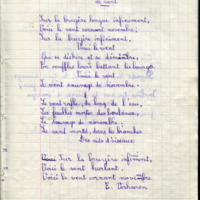 Le vent
Sur la bruyère longue infiniment,
Voici le vent cornant novembre,
Sur la bruyère, infiniment,
Voici le vent
Qui se déchire et se démembre,
En souffles lourds battant les bourgs
Voici le vent,
Le vent sauvage de novembre.
Le vent rafle, le long de l'eau,
Les feuilles mortes des bouleaux,
Le sauvage de novembre.
Le vent mord, dans les branches
Des nids d'oiseaux
Sur la bruyère, infiniment,
Voici le vent hurlant,
Voici le vent cornant novembre
E. Verhaeren